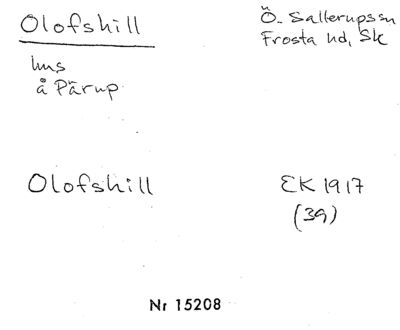 Olofshill
Ö. Sallerupssn
Frosta hd, Sk
hus
å Pärup
Olofshill
EK 1917
(39)
Nr 15208